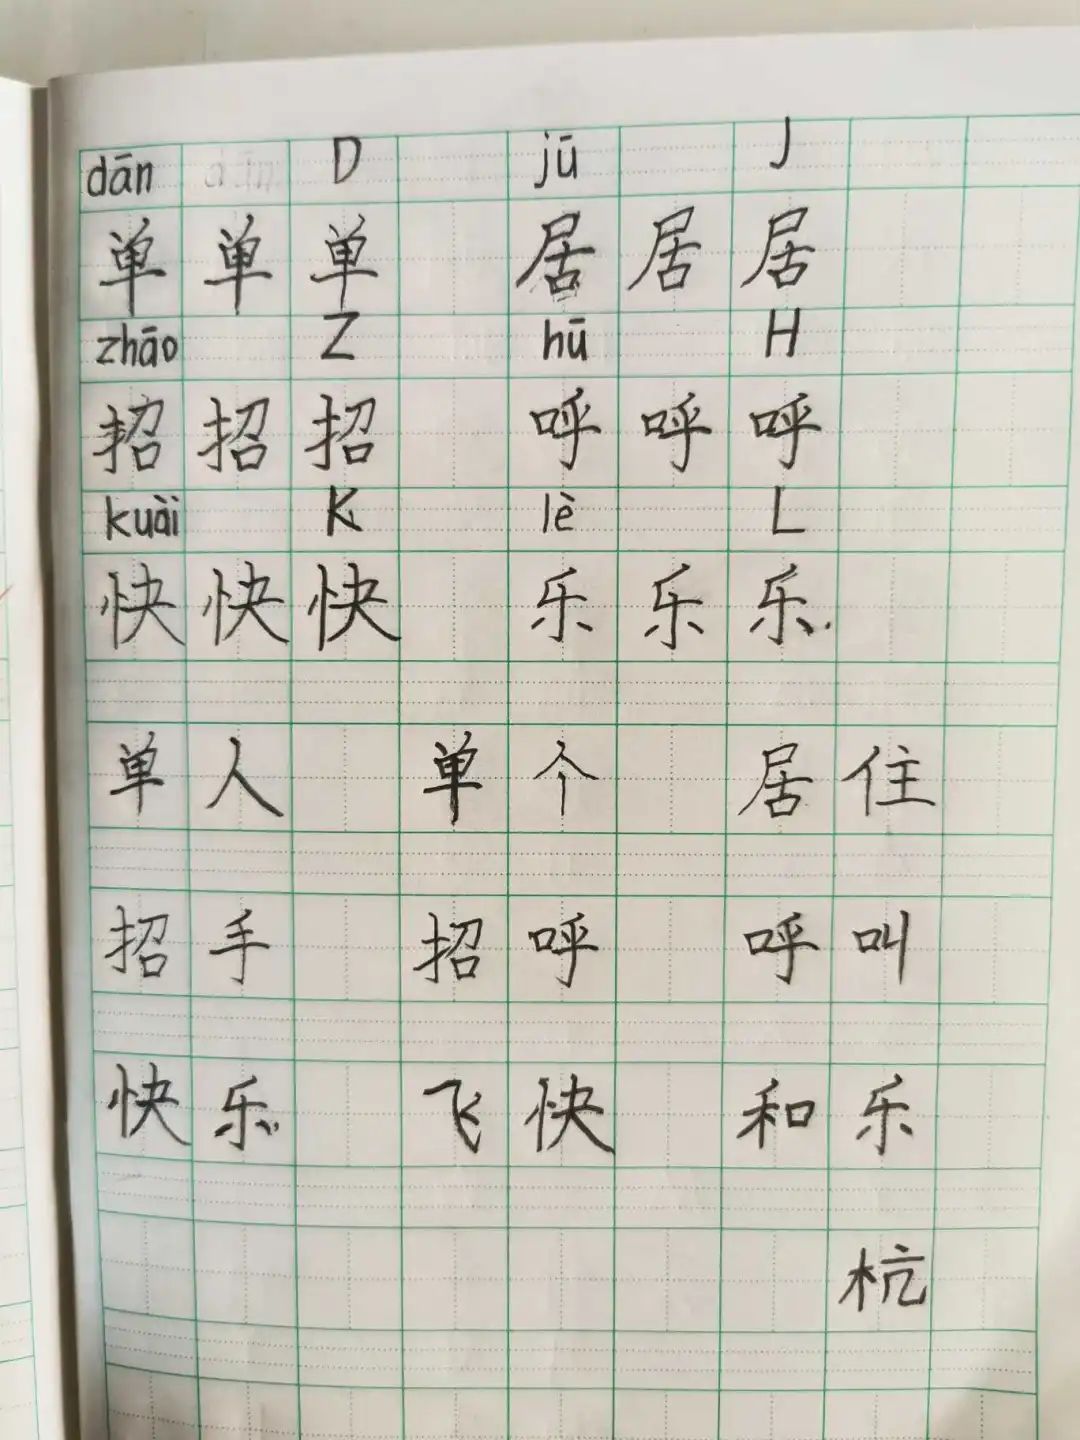 dān D jū J
单 单 单 居 居 居
zhāo Z hū H
招 招 招 呼 呼 呼
kuài K lè L
快 快 快 乐 乐 乐
单 人 单 个 居 住
招 手 招 呼 呼 叫
快 乐 飞 快 和 乐
杭